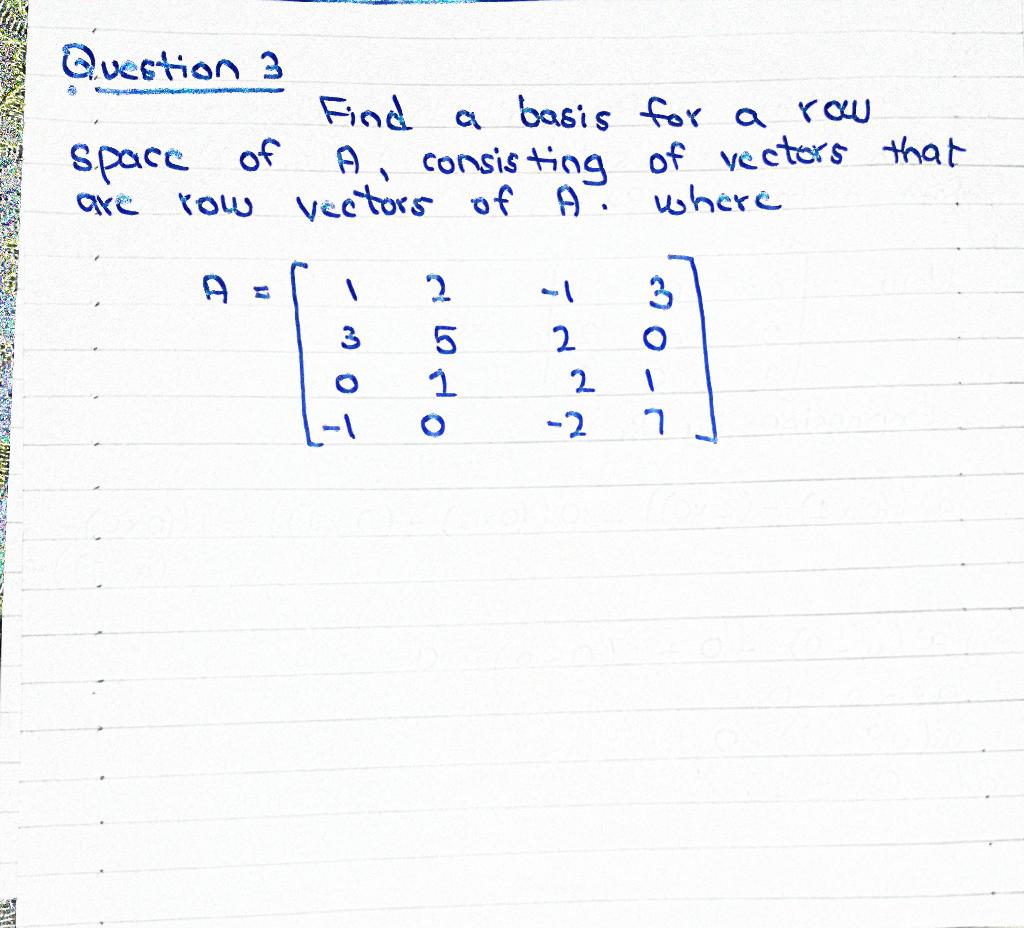 Question 3
Find a basis for a row
space of A, consisting of vectors that
are row vectors of A. where
A = [ 1 2 -1 3 ]
3 5 2 0
0 1 2 1
-1 0 -2 7